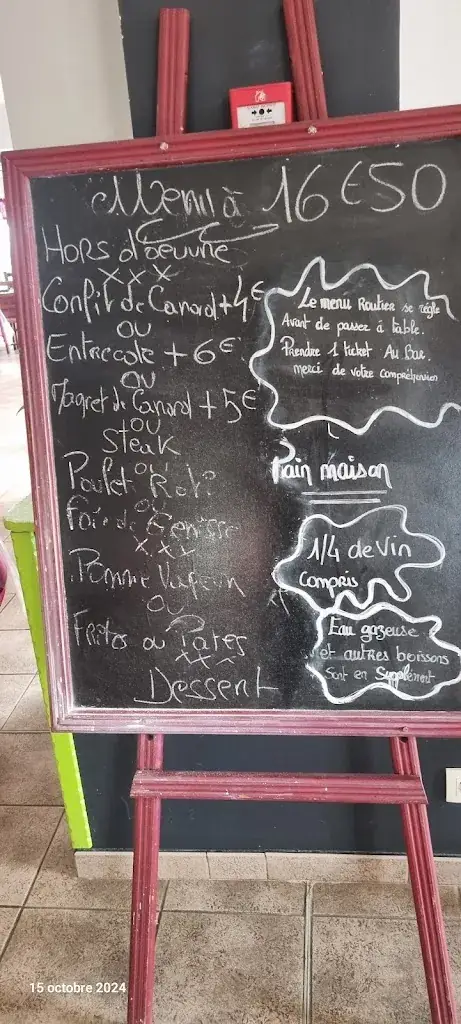 Menu à 16€50
Hors d'oeuvre
xxx
Confit de Canard + 4€
ou
Entrecote + 6€
ou
Magret de Canard + 5€
ou
Steak
ou
Poulet Roti
ou
Foie de Genisse
xxx
Pomme Vapeur
ou
Frites ou Pates
xxx
Dessert
Le menu Routier se règle
Avant de passer à table.
Prendre 1 ticket Au Bar.
merci de votre compréhension
Pain maison
1/4 de Vin
compris
Eau gazeuse
et autres boissons
Sont en Supplément
15 octobre 2024